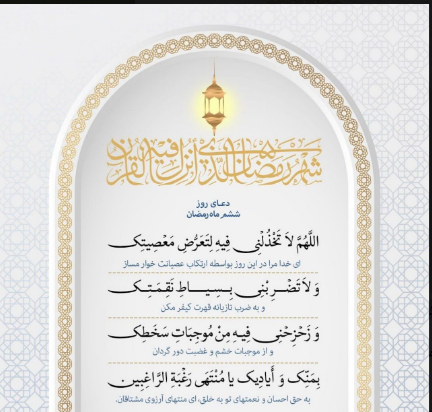 شهر رمضان الذی انزل فیه القرآن
دعـای روز
ششم ماه رمضان
اللَّهُمَّ لاَ تَخْذُلْنِی فِیهِ لِتَعَرُّضِ مَعْصِیَتِکَ
ای خدا مرا در این روز بواسطه ارتکاب عصیانت خوار مساز
وَ لاَ تَضْرِبْنِی بِسِیَاطِ نَقِمَتِکَ
و به ضرب تازیانه قهرت کیفر مکن
وَ زَحْزِحْنِی فِیهِ مِنْ مُوجِبَاتِ سَخَطِکَ
و از موجبات خشم و غضبت دور گردان
بِمَنِّکَ وَ أَیَادِیکَ یَا مُنْتَهَى رَغْبَةِ الرَّاغِبِینَ
به حق احسان و نعمتهای تو به خلق، ای منتهای آرزوی مشتاقان.